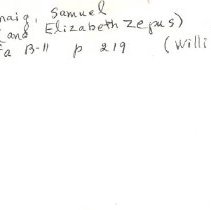 naig, Samuel
and Elizabeth Zepus)
Fa B-11 p 219 (Willi